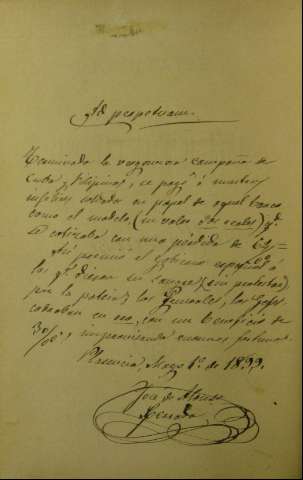 Ad perpetuam.
Terminada la vergonzosa campaña de
Cuba y Filipinas, se pagó á nuestros
infelices soldados en papel de igual
como el modelo (en valor dos reales) y q.
se cotizaba con una pérdida de
Así premió el Gobierno español á
los q. dieron su sangre (sin protestas)
por la patria; los Generales, los Gefes
cobraban en oro, con un beneficio de
30/00 e improvisando cuansas fortunas.
Plasencia Mayo 1º de 1899.
José de